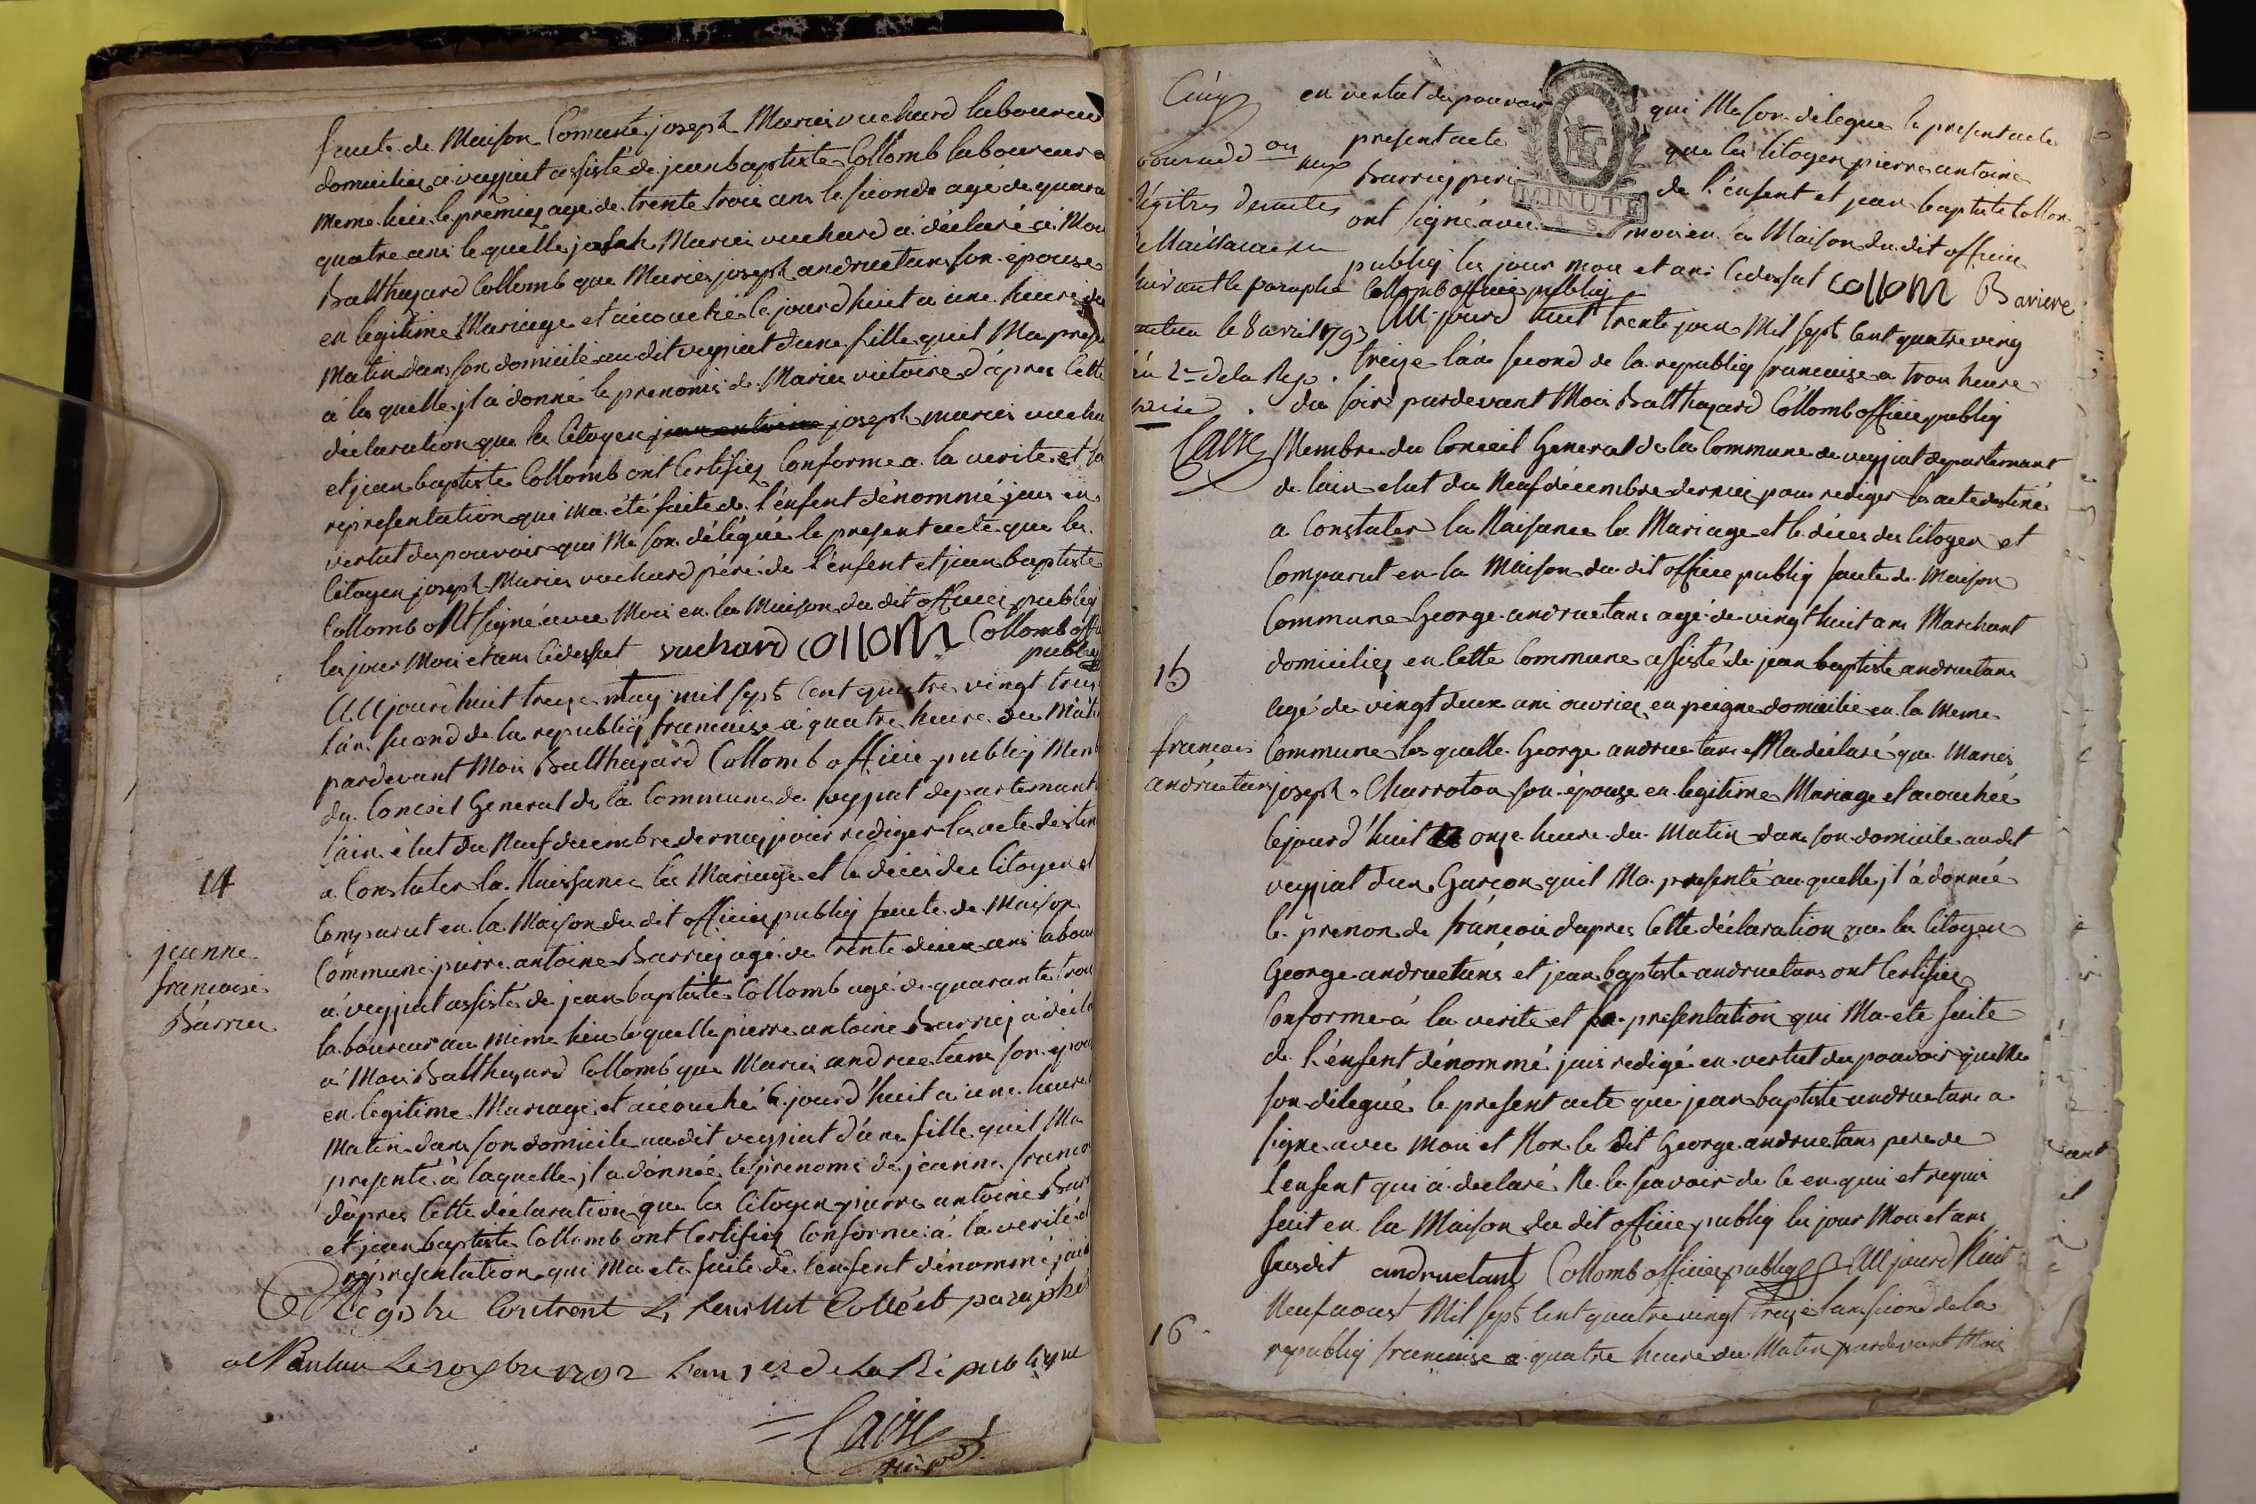 faute de Maison Comune joseph Marie vuchard laboureur
domicilié a veyziat assisté de jean baptiste Collomb laboureur
meme lieu le premier agé de trente trois ans le second agé de quara
quatre ans le quelle joseph Marie vuchard a déclaré a Moi
Balthazard Collomb que Marie joseph andruetans son épouse
en legitime Mariage et acouché cejourdhuit a une heure du
Matin dans son domicile audit veyziat dune fille quil Ma pres
a la quelle jl a donné le prenoms de Marie victoire d'apres Cette
déclaration que les Citoyen jean antoine joseph marie vucha
et jean baptiste Collomb ont Certifiez Conforme a la verite et la
representation qui Ma été faite de l'enfent dénommé jais en
vertut des pouvoir qui Me son délégué le present acte que les
Citoyen joseph Marie vuchard péré de l'enfent et jean baptiste
Collomb ont signé avec Moi en la Maison du dit officier publiq
les jour Mois et ans Cidessut vuchard Collom Collomb offi
publiq
Aujourdhuit treize may mil sept Cent quatre vingt treize
l'an second de la republiq francaise a quatre heure du Matin
pardevant Moi Balthazard Collomb officie publiq Memb
du Conceil General de la Commune de veyziat departemant
lain élut du Neuf decembre dernier pour rediger les acte destin
a Constater la Naissance les Mariage et le déces des Citoyen et
14
Comparut en la Maison du dit officier publiq faute de Maison
Commune pierre antoine Barriez agé de trente deux ans labour
jeanne
francoise
Barrier
a veyziat assisté de jean baptiste Collomb agé de quarante trois
laboureur au Méme lieu lequelle pierre antoine Barriez a décla
a Moi Balthazard Collomb que Marie andruetans son epou
en legitime Mariage et acouché Cejourd'huit a une heure
Matin dans son domicile audit veyziat d'une fille quil Ma
presenté a laquelle jl a donnée le prenoms de jeanne franco
dapres Cette déclaration que les Citoyen pierre antoine Bar
et jean baptiste Collomb ont Certifiez Conforme a la verite et
representation qui Ma ete faite de l'enfent dénommé jais
Régistre Contenent feuillet Cotté et paraphé
a Nantua 1792 L'an 1er de La République
Cavne
Cinq
ou
aux
Régitres de
Naissance
suivant le paraphé
nantua le 8 avril 1793
an 2e de la Rep.
Cavne
en vertut des pouvoir qui Me son delegue le present acte
present acte que les Citoyen pierre antoine
Barriez peré de l'enfent et jean baptiste Collom
MINUTE
ont signé avec moi en la Maison du dit officier
publiq les jour mois et ans Cidessut Collom Bariere
Collomb officier publiq
Aujourd huit trente juin Mil sept Cent quatre ving
treize l'an second de la republiq francaise a trois heure
du soir pardevant Moi Balthazard Collomb officie publiq
Membre du Conceil General de la Commune de veyziat departemant
de lain elut du Neuf décembre dernier pour rediger les acte destiné
a Constater la Naisance les Mariage et le déces des Citoyen et
Comparut en la Maison du dit officie publiq faute de Maison
Commune George andruetans agé de vingt huit ans Marchant
15
domiciliez en Cette Commune assisté de jean baptiste andruetans
agé de vingt deux ans ouvrier en peigne domicilie en la Meme
francois
andruetans
Commune les quelle George andruetans Ma déclaré que Marie
joseph Charroton son épouse en legitime Mariage et acouchée
Cejourd'huit a onze heure du Matin dans son domicile audit
veyziat d'un Garcon quil Ma presenté au quelle jl a donnée
le prenon de francois dapres Cette déclaration que les Citoyen
George andruetans et jean baptiste andruetans ont Certifiez
Conforme a la verite et la presentation qui Ma ete faite
de l'enfent dénommé jais redigé en vertut des pouvoir qui Me
son délegué le present acte que jean baptiste andruetans a
signe avec Moi et Non le dit George andruetans pere de
l'enfent qui a declaré Ne le scavoir de ce enquis et requis
fait en la Maison du dit officie publiq les jour Moi et ans
susdit andruetant Collomb officier publiq Aujourd'huit
16
Neuf aoust Mil sept Cent quatre vingt treize l'an second de la
republiq francaise a quatre heure du Matin pardevant Moi